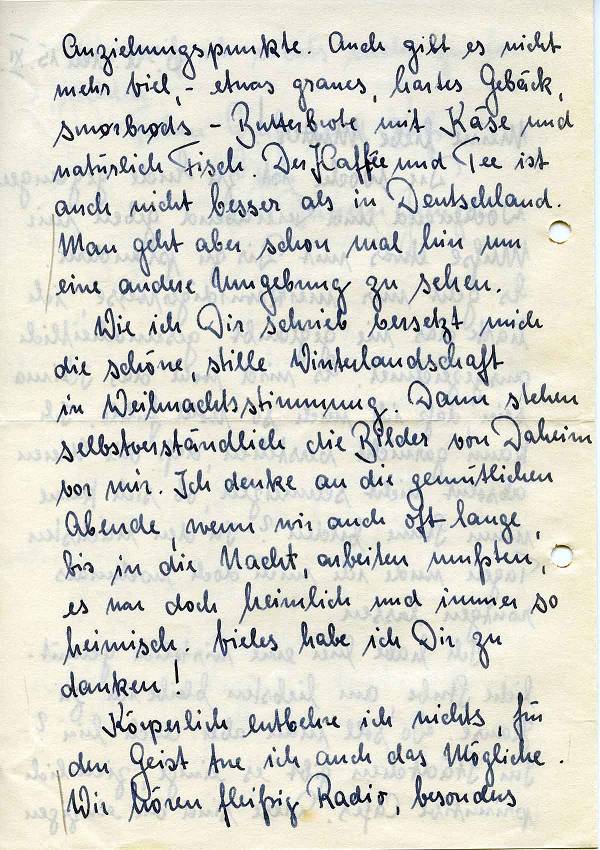 Anziehungspunkte. Auch gibt es nicht
mehr viel, - etwas graues, hartes Gebäck,
smørbrøds - Butterbrote mit Käse und
natürlich Fisch. Der Kaffee und Tee ist
auch nicht besser als in Deutschland.
Man geht aber schon mal hin um
eine andre Umgebung zu sehen.
Wie ich Dir schrieb versetzt mich
die schöne, stille Winterlandschaft
in Weihnachtsstimmung. Dann stehen
selbstverständlich die Bilder von Daheim
vor mir. Ich denke an die gemütlichen
Abende, wenn wir auch oft lange,
bis in die Nacht, arbeiten mußten,
es war doch heimlich und immer so
heimisch. Vieles habe ich Dir zu
danken!
Körperlich entbehre ich nichts, für
den Geist tue ich auch das Mögliche.
Wir hören fleißig Radio, besonders